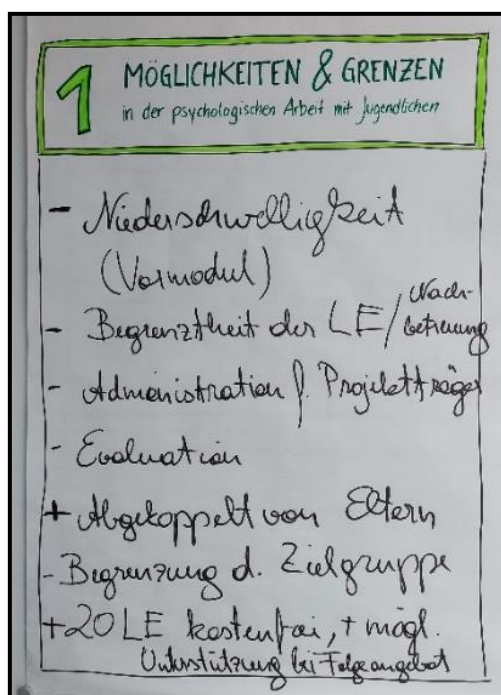 1
MÖGLICHKEITEN & GRENZEN
in der psychologischen Arbeit mit Jugendlichen
- Niederschwelligkeit
(Vormodul)
- Begrenztheit der LE / Nach-
betreuung
- Administration f. Projektträger
- Evaluation
+ Abgekoppelt von Eltern
- Begrenzung d. Zielgruppe
+ 20 LE kostenfrei, + mögl.
Unterstützung bei Folgeangebot